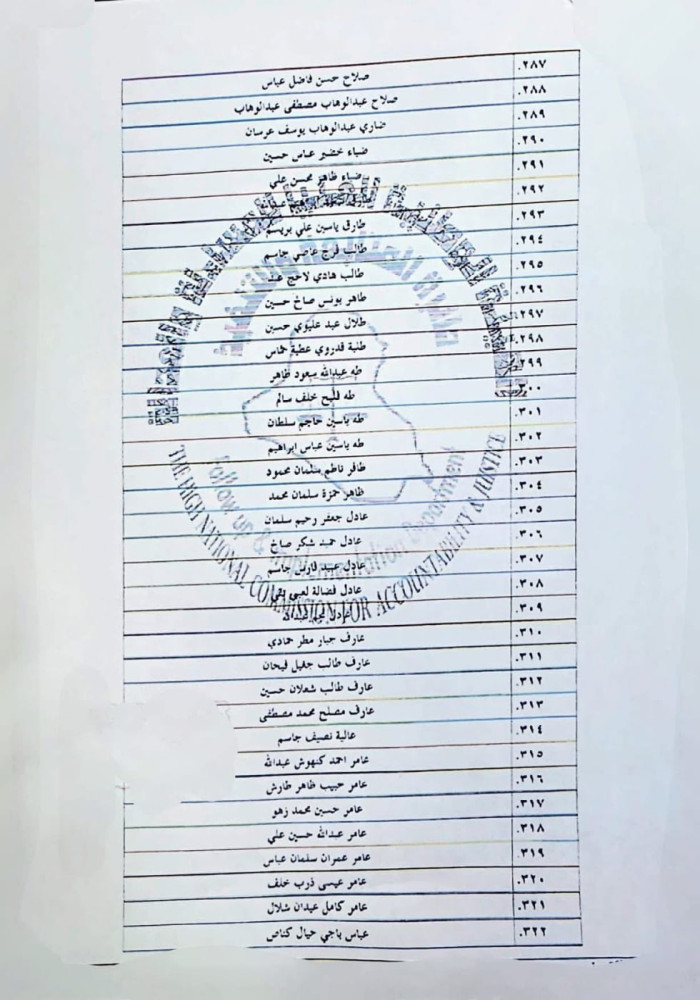 .٢٨٧ صلاح حسن فاضل عباس
.٢٨٨ صلاح عبدالوهاب مصطفى عبدالوهاب
.٢٨٩ ضاري عبدالوهاب يوسف عرسان
.٢٩٠ ضياء خضير عباس حسين
.٢٩١ ضياء ظاهر محسن علي
.٢٩٢
.٢٩٣ طارق ياسين علي بريسم
.٢٩٤ طالب فرج عاصي جاسم
.٢٩٥ طالب هادي لاحج
.٢٩٦ طاهر يونس صالح حسين
.٢٩٧ طلال عبد عليوي حسين
.٢٩٨ طلبة قدروي عطية خماس
.٢٩٩ طه عبدالله سعود ظاهر
.٣٠٠ طه فليح خلف سالم
.٣٠١ طه ياسين حاجم سلطان
.٣٠٢ طه ياسين عباس ابراهيم
.٣٠٣ ظافر ناظم سلمان محمود
.٣٠٤ ظاهر حمزة سلمان محمد
.٣٠٥ عادل جعفر رحيم سلمان
.٣٠٦ عادل حميد شكر صالح
.٣٠٧ عادل عبيد فارس جاسم
.٣٠٨ عادل فضالة لعيبي
.٣٠٩ عادل نجم عبدالله
.٣١٠ عارف جبار مطر حمادي
.٣١١ عارف طالب جفيل فيحان
.٣١٢ عارف طالب شعلان حسين
.٣١٣ عارف مصلح محمد مصطفى
.٣١٤ عالية نصيف جاسم
.٣١٥ عامر احمد كنهوش عبدالله
.٣١٦ عامر حبيب ظاهر طارش
.٣١٧ عامر حسين محمد زهو
.٣١٨ عامر عبدالله حسين علي
.٣١٩ عامر عمران سلمان عباس
.٣٢٠ عامر عيسى ذرب خلف
.٣٢١ عامر كامل عيدان شلال
.٣٢٢ عباس ياجي حيال كناص
THE HIGH NATIONAL COMMISSION FOR ACCOUNTABILITY & JUSTICE
Follow up & Implementation Department